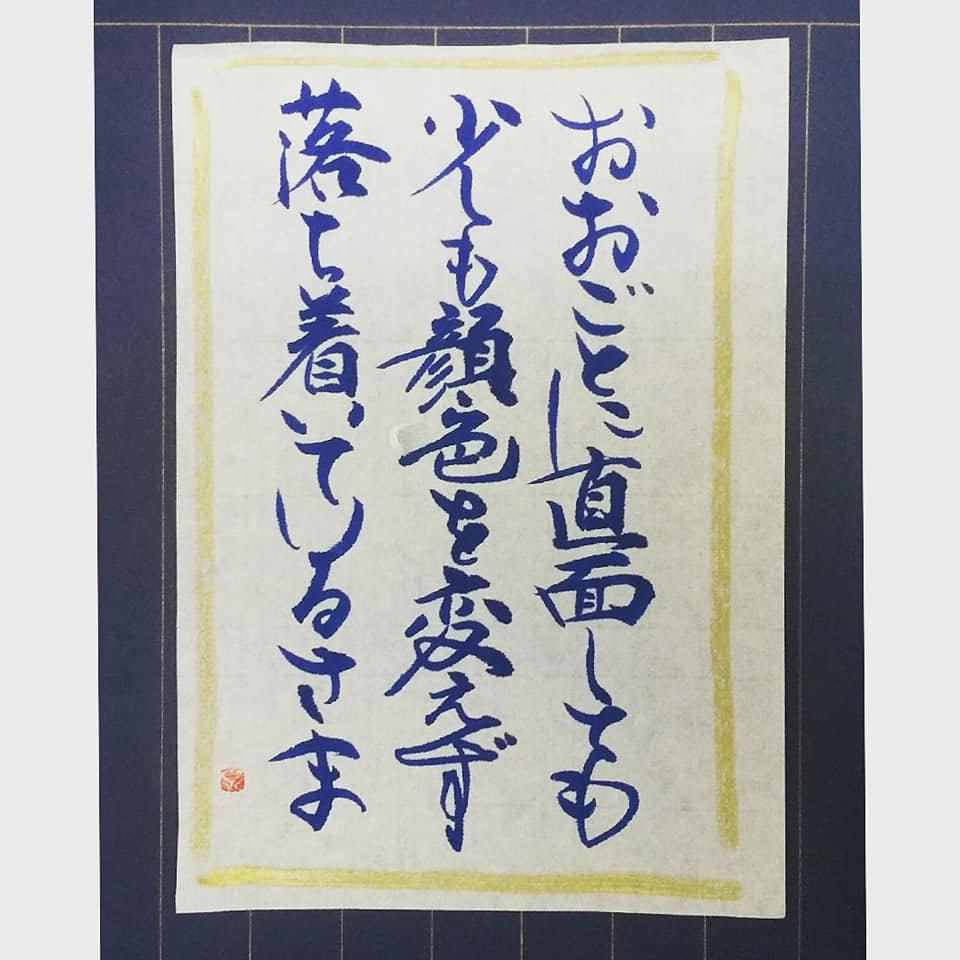 おおごとに直面しても
少しも顔色を変えず
落ち着いているさま